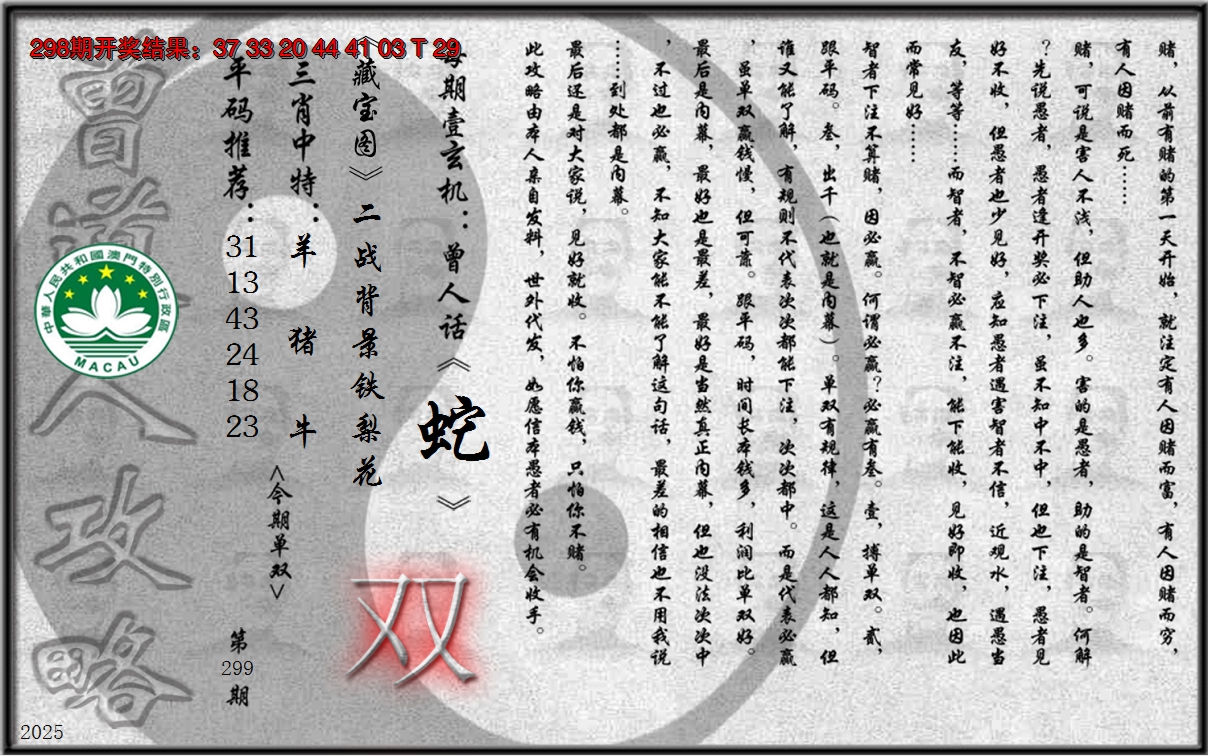 298期开奖结果：37 33 20 44 41 03 T 29
赌，从前有赌的第一天开始，就注定有人因赌而富，有人因赌而穷，
有人因赌而死……
赌，可说是害人不浅，但助人也多。害的是愚者，助的是智者。何解
？先说愚者，愚者逢开奖必下注，虽不知中不中，但也下注，愚者见
好不收，但愚者也少见好，应知愚者遇害智者不信，近观水，遇愚当
友，等等……而智者，不智必赢不注，能下能收，见好即收，也因此
而常见好……
智者下注不算赌，因必赢。何谓必赢？必赢有叁。壹，搏单双。贰，
跟平码。叁，出千（也就是内幕）。单双有规律，这是人人都知，但
谁又能了解，有规则不代表次次都能下注，次次都中。而是代表必赢
，虽单双赢钱慢，但可靠。跟平码，时间长本钱多，利润比单双好。
最后是内幕，最好也是最差，最好是当然真正内幕，但也没法次次中
，不过也必赢，不知大家能不能了解这句话，最差的相信也不用我说
……到处都是内幕。
最后还是对大家说，见好就收。不怕你赢钱，只怕你不赌。
此攻略由本人亲自发料，世外代发，如愿信本愚者必有机会收手。
每期壹玄机：曾人话《蛇》
《藏宝图》二战背景铁梨花
双
三肖中特：羊 猪 牛
<今期单双>
平码推荐：
31
13
43
24
18
23
第
299
期
曾道人攻略
中華人民共和國澳門特別行政區
MACAU
2025